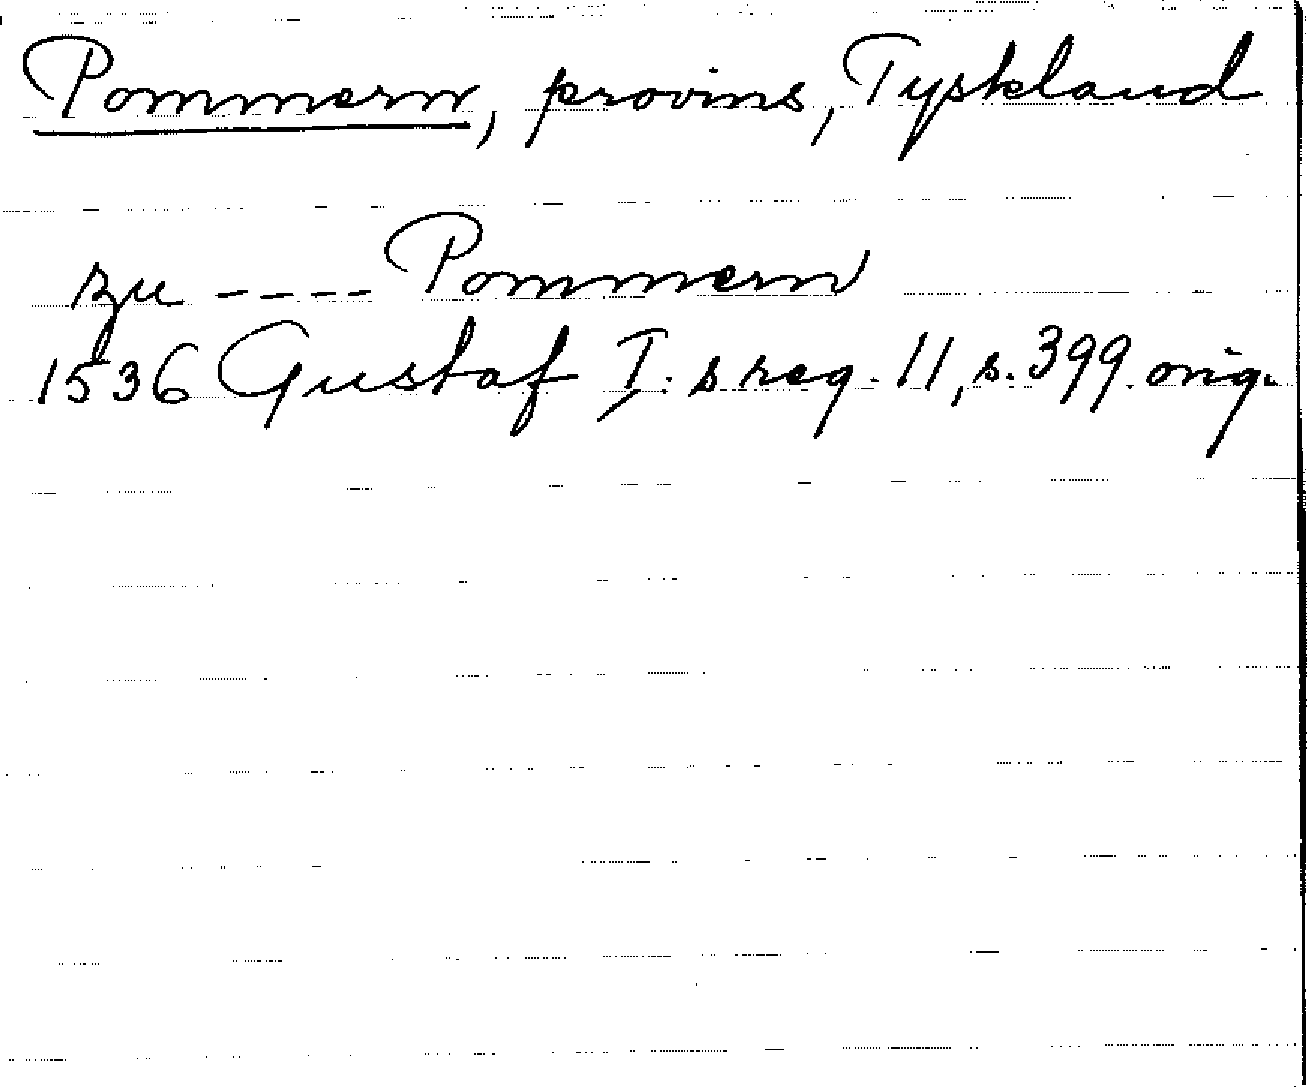 Pommern, provins, Tyskland
zu ---- Pommern
1536 Gustaf I. s reg. 11, s. 399. orig.